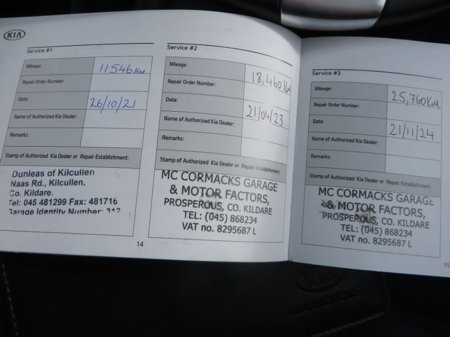 KIA
Service #1
Mileage: 11546km
Repair Order Number:
Date: 26/10/21
Name of Authorized Kia Dealer
Remarks:
Stamp of Authorized Kia Dealer or Repair Establishment:
Dunleas of Kilcullen
Naas Rd., Kilcullen,
Co. Kildare.
Tel: 045 481299 Fax: 481716
Garage Identity Number: 312
14
Service #2
Mileage: 18,460 Km
Repair Order Number:
Date: 21/04/23
Name of Authorized Kia Dealer
Remarks:
Stamp of Authorized Kia Dealer or Repair Establishment:
MC CORMACKS GARAGE
& MOTOR FACTORS,
PROSPEROUS, CO. KILDARE
TEL: (045) 868234
VAT no. 8295687 L
Service #3
Mileage: 25,760Km
Repair Order Number:
Date: 21/11/24
Name of Authorized Kia Dealer
Remarks:
Stamp of Authorized Kia Dealer or Repair Establishment:
MC CORMACKS GARAGE
& MOTOR FACTORS,
PROSPEROUS, CO. KILDARE
TEL: (045) 868234
VAT no. 8295687 L
15
KIA